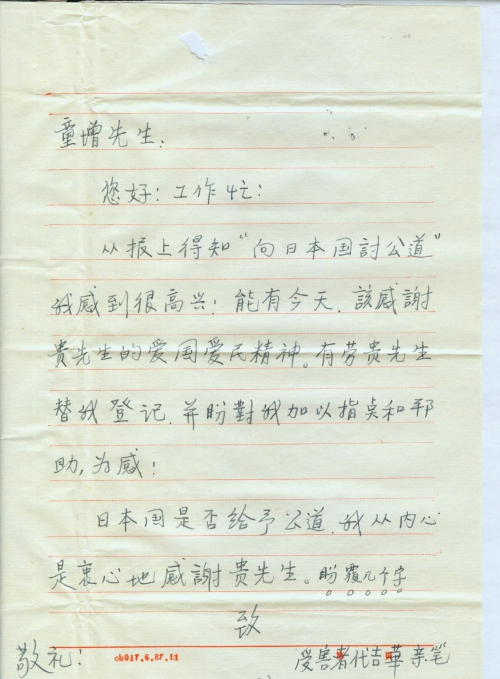 童增先生.
您好！工作忙！
从报上得知“向日本国討公道”
我感到很高兴！能有今天.該感謝
貴先生的爱国爱民精神。有劳贵先生
替我登记.并盼對我加以指点和帮
助,为感！
日本国是否给予公道.我从内心
是衷心地感謝贵先生。盼覆几个字
致
敬礼！ ch017.6.87.11 受害者代吉華亲笔